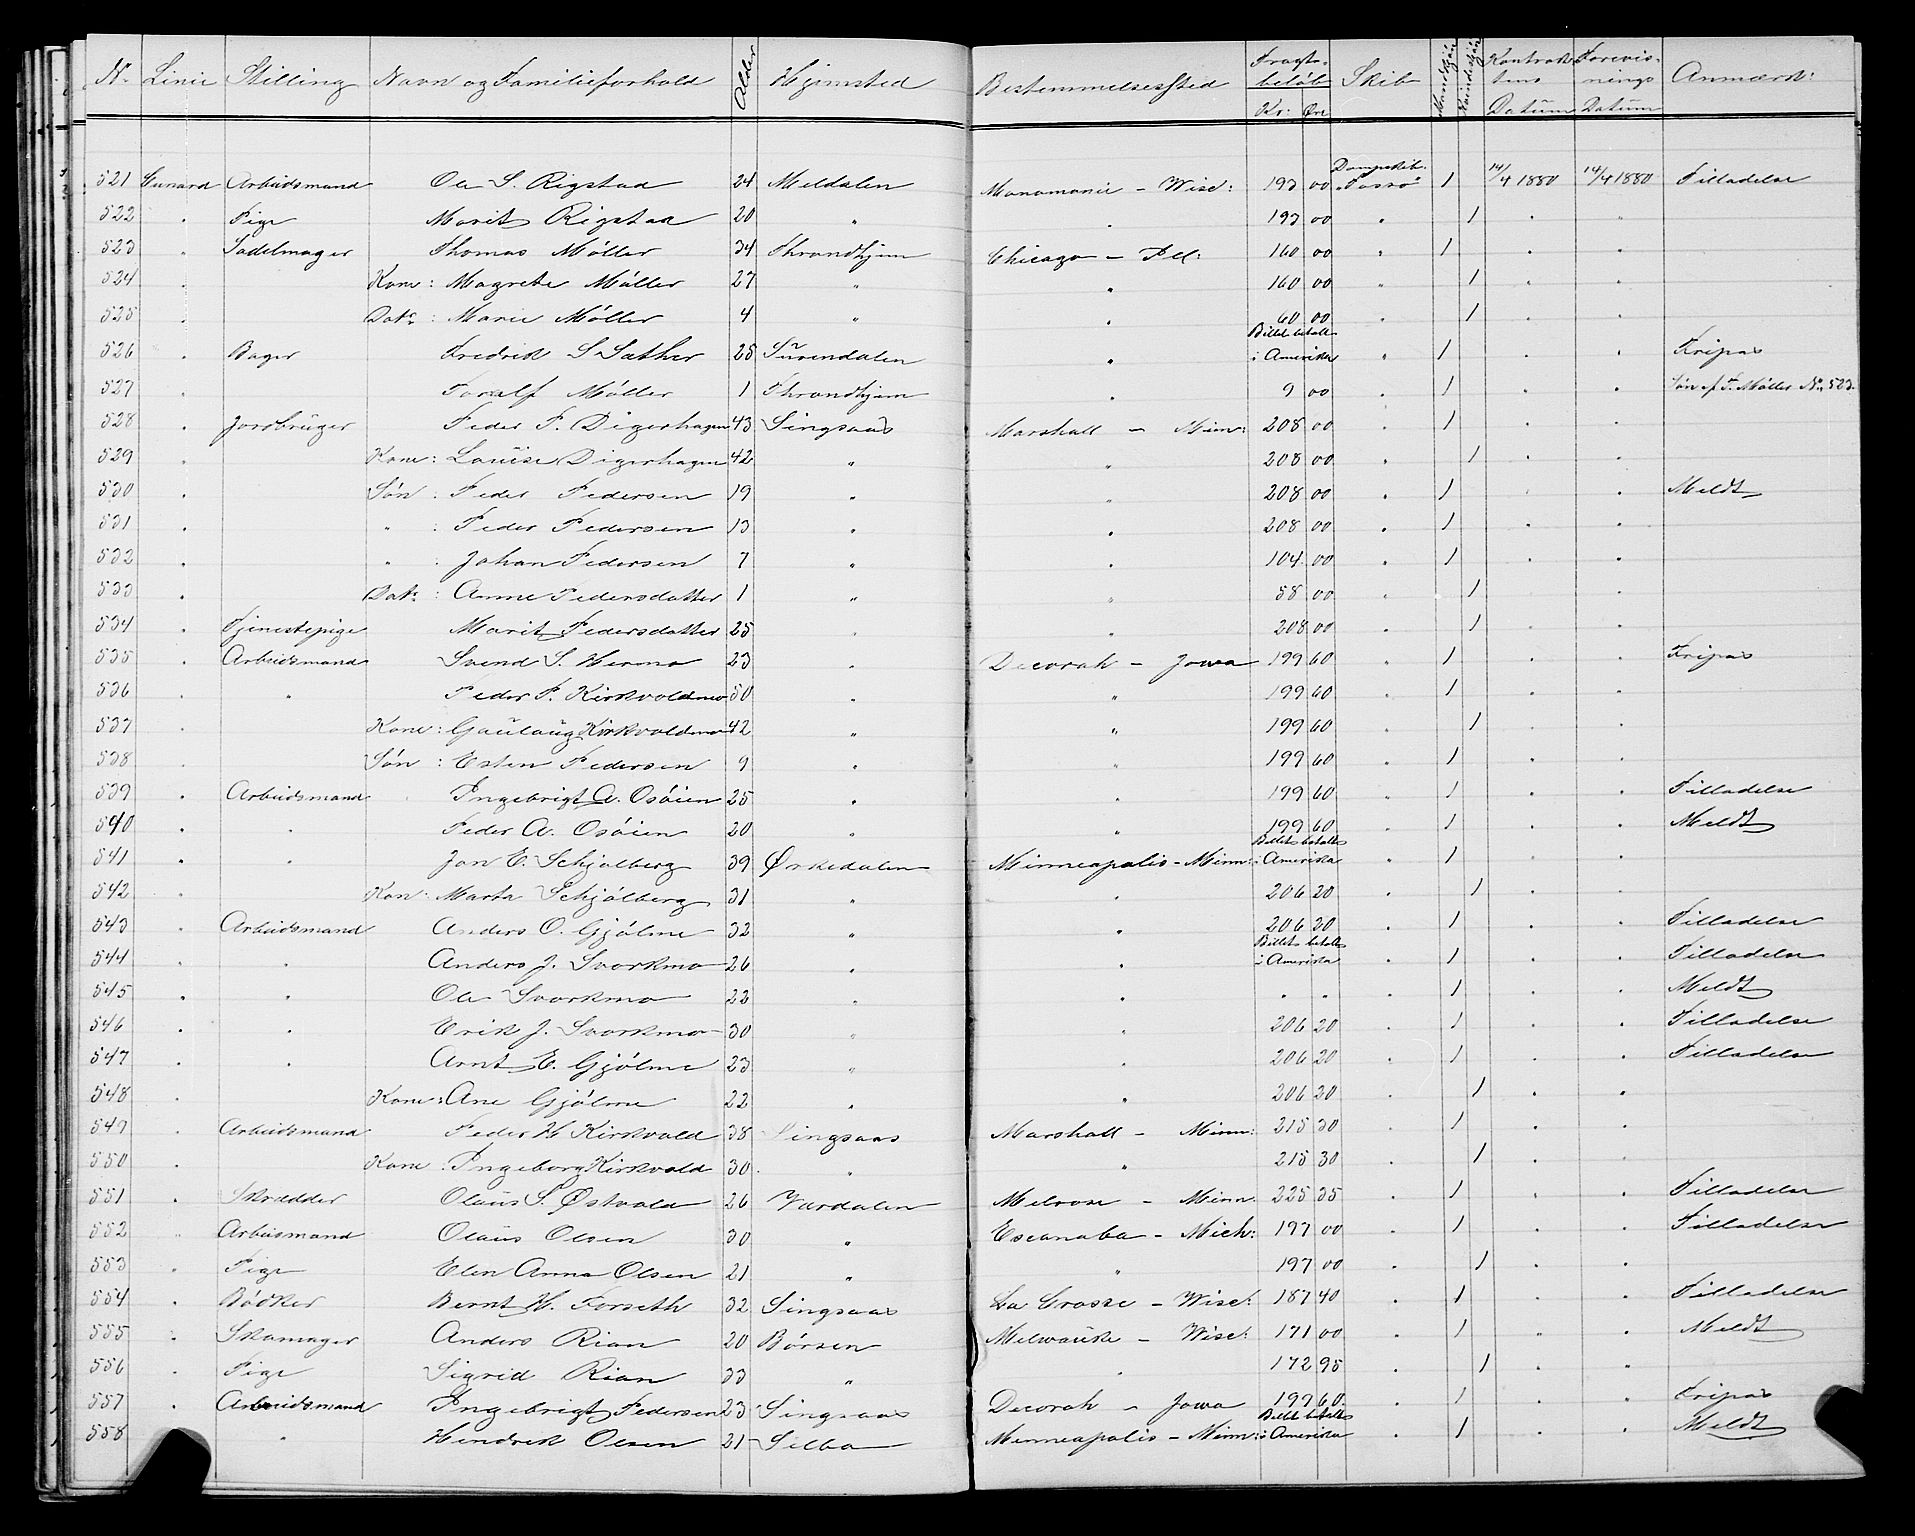 No. Linie Stilling Navn og Familieforhold Alder Hjemsted Bestemmelsessted Fragtbeløb Kr: Øre Skib Mandkjøn Kvindekjøn Kontraktens Datum Forevisnings Datum Anmærk:
521 Cunard Arbeidsmand Ole S. Rigstad 24 Meldalen Manomanie - Wisc: 193 00 Dampskib: "Tasso" 1 14/4 1880 14/4 1880 Tilladelse
522 " Pige Marit Rigstad 20 " " 193 00 " 1 " "
523 " Sadelmager Thomas Møller 34 Throndhjem Chicago - Ill: 160 00 " 1 " "
524 " Kone: Magrete Møller 27 " " 160 00 " 1 " "
525 " Datr: Marie Møller 4 " " 60 00 " 1 " "
526 " Bager Fredrik S Sæther 25 Surendalen " Billet betalt i Amerika " 1 " " Fripas
527 " Toralf Møller 1 Throndhjem " 9 00 " 1 " " Søn af T. Møller No. 523.
528 " Jordbruger Peder P. Digerhagen 43 Singsaas Marshall - Minn: 208 00 " 1 " "
529 " Kone: Louise Digerhagen 42 " " 208 00 " 1 " "
530 " Søn: Peder Pedersen 19 " " 208 00 " 1 " " Meldt
531 " " : Peder Pedersen 13 " " 208 00 " 1 " "
532 " " : Johan Pedersen 7 " " 104 00 " 1 " "
533 " Datr: Anne Pedersdatter 1 " " 58 00 " 1 " "
534 " Tjenestepige Marit Pedersdatter 25 " " 208 00 " 1 " "
535 " Arbeidsmand Svend S. Hermo 23 " Decorah - Jowa 199 60 " 1 " " Fripas
536 " " Peder P. Kirkvoldmo 50 " " 199 60 " 1 " "
537 " Kone: Gaulaug Kirkvoldmo 42 " " 199 60 " 1 " "
538 " Søn: Esten Pedersen 9 " " 199 60 " 1 " "
539 " Arbeidsmand Ingebrigt A. Osøien 25 " " 199 60 " 1 " " Tilladelse
540 " " Peder A. Osøien 20 " " 199 60 " 1 " " Meldt
541 " " Jon E. Schjølberg 39 Ørkedalen Minneapolis - Minn: Billet betalt i Amerika " 1 " "
542 " Kon: Marta Schjølberg 31 " " 206 20 " 1 " "
543 " Arbeidsmand Anders O. Gjølme 32 " " 206 20 " 1 " " Tilladelse
544 " " Anders J. Svorkmo 26 " " Billet betalt i Amerika " 1 " " Tilladelse
545 " " Ole Svorkmo 22 " " " " " 1 " " Meldt
546 " " Erik J. Svorkmo 30 " " 206 20 " 1 " " Tilladelse
547 " " Arnt E. Gjølme 23 " " 206 20 " 1 " " Tilladelse
548 " Kone: Ane Gjølme 22 " " 206 20 " 1 " "
549 " Arbeidsmand Peder H Kirkvold 38 Singsaas Marshall - Minn: 215 30 " 1 " "
550 " Kone: Ingeborg Kirkvold 30 " " 215 30 " 1 " "
551 " Skrædder Olaus S. Østvold 26 Værdalen Melrose - Minn. 225 35 " 1 " " Tilladelse
552 " Arbeismand Olaus Olsen 30 " Escanaba - Mich: 197 00 " 1 " " Tilladelse
553 " Pige Elen Anna Olsen 21 " " 197 00 " 1 " "
554 " Bødker Bernt H. Forseth 32 Singsaas La Crosse - Wisc: 187 40 " 1 " " Tilladelse
555 " Skomager Anders Rian 20 Børsen Melwauke - Wisc: 171 00 " 1 " " Meldt
556 " Pige Sigrid Rian 33 " " 172 95 " 1 " "
557 " Arbeidsmand Ingebrigt Pedersen 23 Singsaas Decorah - Jowa 199 60 " 1 " " Fripas
558 " " Hendrik Olsen 21 Selbo Minneapolis - Minn: Billet betalt i Amerika " 1 " " Meldt